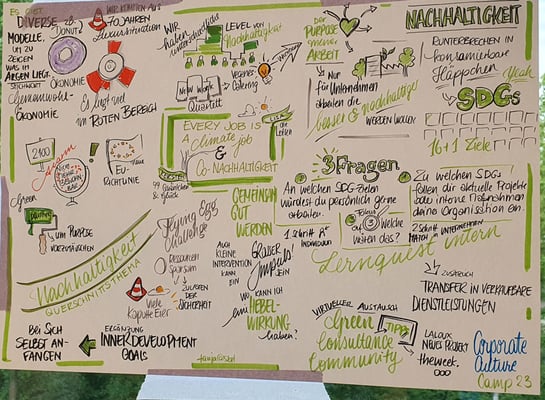 Es gibt
DIVERSE
MODELLE,
UM ZU
ZEIGEN
WAS IM
ARGEN LIEGT.
DONUT
ÖKONOMIE
STICHWORT
Gemeinwohl-
ÖKONOMIE
WIR KOMMEN AUS
70 JAHREN
Luxussituation
Es liegt viel
im ROTEN BEREICH
WIR
haben
unterschiedliche
LEVEL VON
Nachhaltigkeit
Veganes
Catering
NEW WORK
Quartett
EVERY JOB IS
A climate job
&
CO-NACHHALTIGKEIT
DER
PURPOSE
meiner
ARBEIT
Nur
für Unternehmen
arbeiten die
besser & nachhaltiger
WERDEN WOLLEN
NACHHALTIGKEIT
RUNTERBRECHEN IN
konsumierbare
Häppchen
Yeah
SDGs
16+1 Ziele
3 Fragen
An welchen SDG-Zielen
würdest du persönlich gerne
arbeiten.
Zu welchen SDGs
fallen dir aktuelle Projekte
oder interne Maßnahmen
deine Organisation ein.
Fokus
auf 3
Welche
wären das?
Lernquest intern
TRANSFER IN VERKAUFBARE
DIENSTLEISTUNGEN
EU-
RICHTLINIE
Green
painting
UM PURPOSE
VORZUTÄUSCHEN
GEMEINSAM
GUT
WERDEN
Flying Egg
Challenge
Ressourcen
Sparsam
ZULASTEN
DER
SICHERHEIT
Viele
Kaputte Eier
AUCH
KLEINE
INTERVENTION
KANN
EIN
GROẞER
Impuls
SEIN
WO
KANN ICH
eine HEBEL-
WIRKUNG
haben?
Nachhaltigkeit
QUERSCHNITTSTHEMA
BEI SICH
SELBST AN-
FANGEN
ERGÄNZUNG
INNER DEVELOPMENT
GOALS
VIRTUELLER AUSTAUSCH
Green
Consultance
Community
TIPP
LALOUX
NEUES PROJEKT
theweek.
ooo
Corporate
Culture
Camp 23